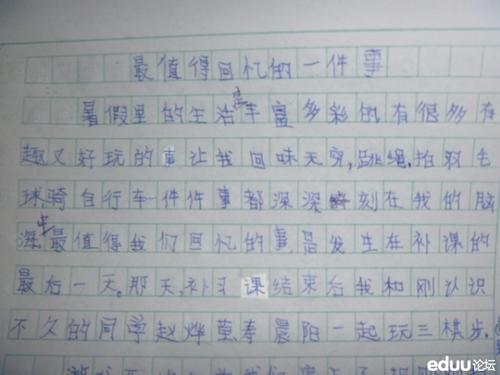 最值得回忆的一件事
暑假里的生活是丰富多彩的,有很多有
趣又好玩的事让我回味无穷,跳绳,拍羽毛
球骑自行车一件件事都深深刻在我的脑
海中最值得我们回忆的事是发生在补课的
最后一天。那天,补习课结束后我和刚认识
不久的同学赵烨萤李晨阳一起玩三棋步,
eduu论坛